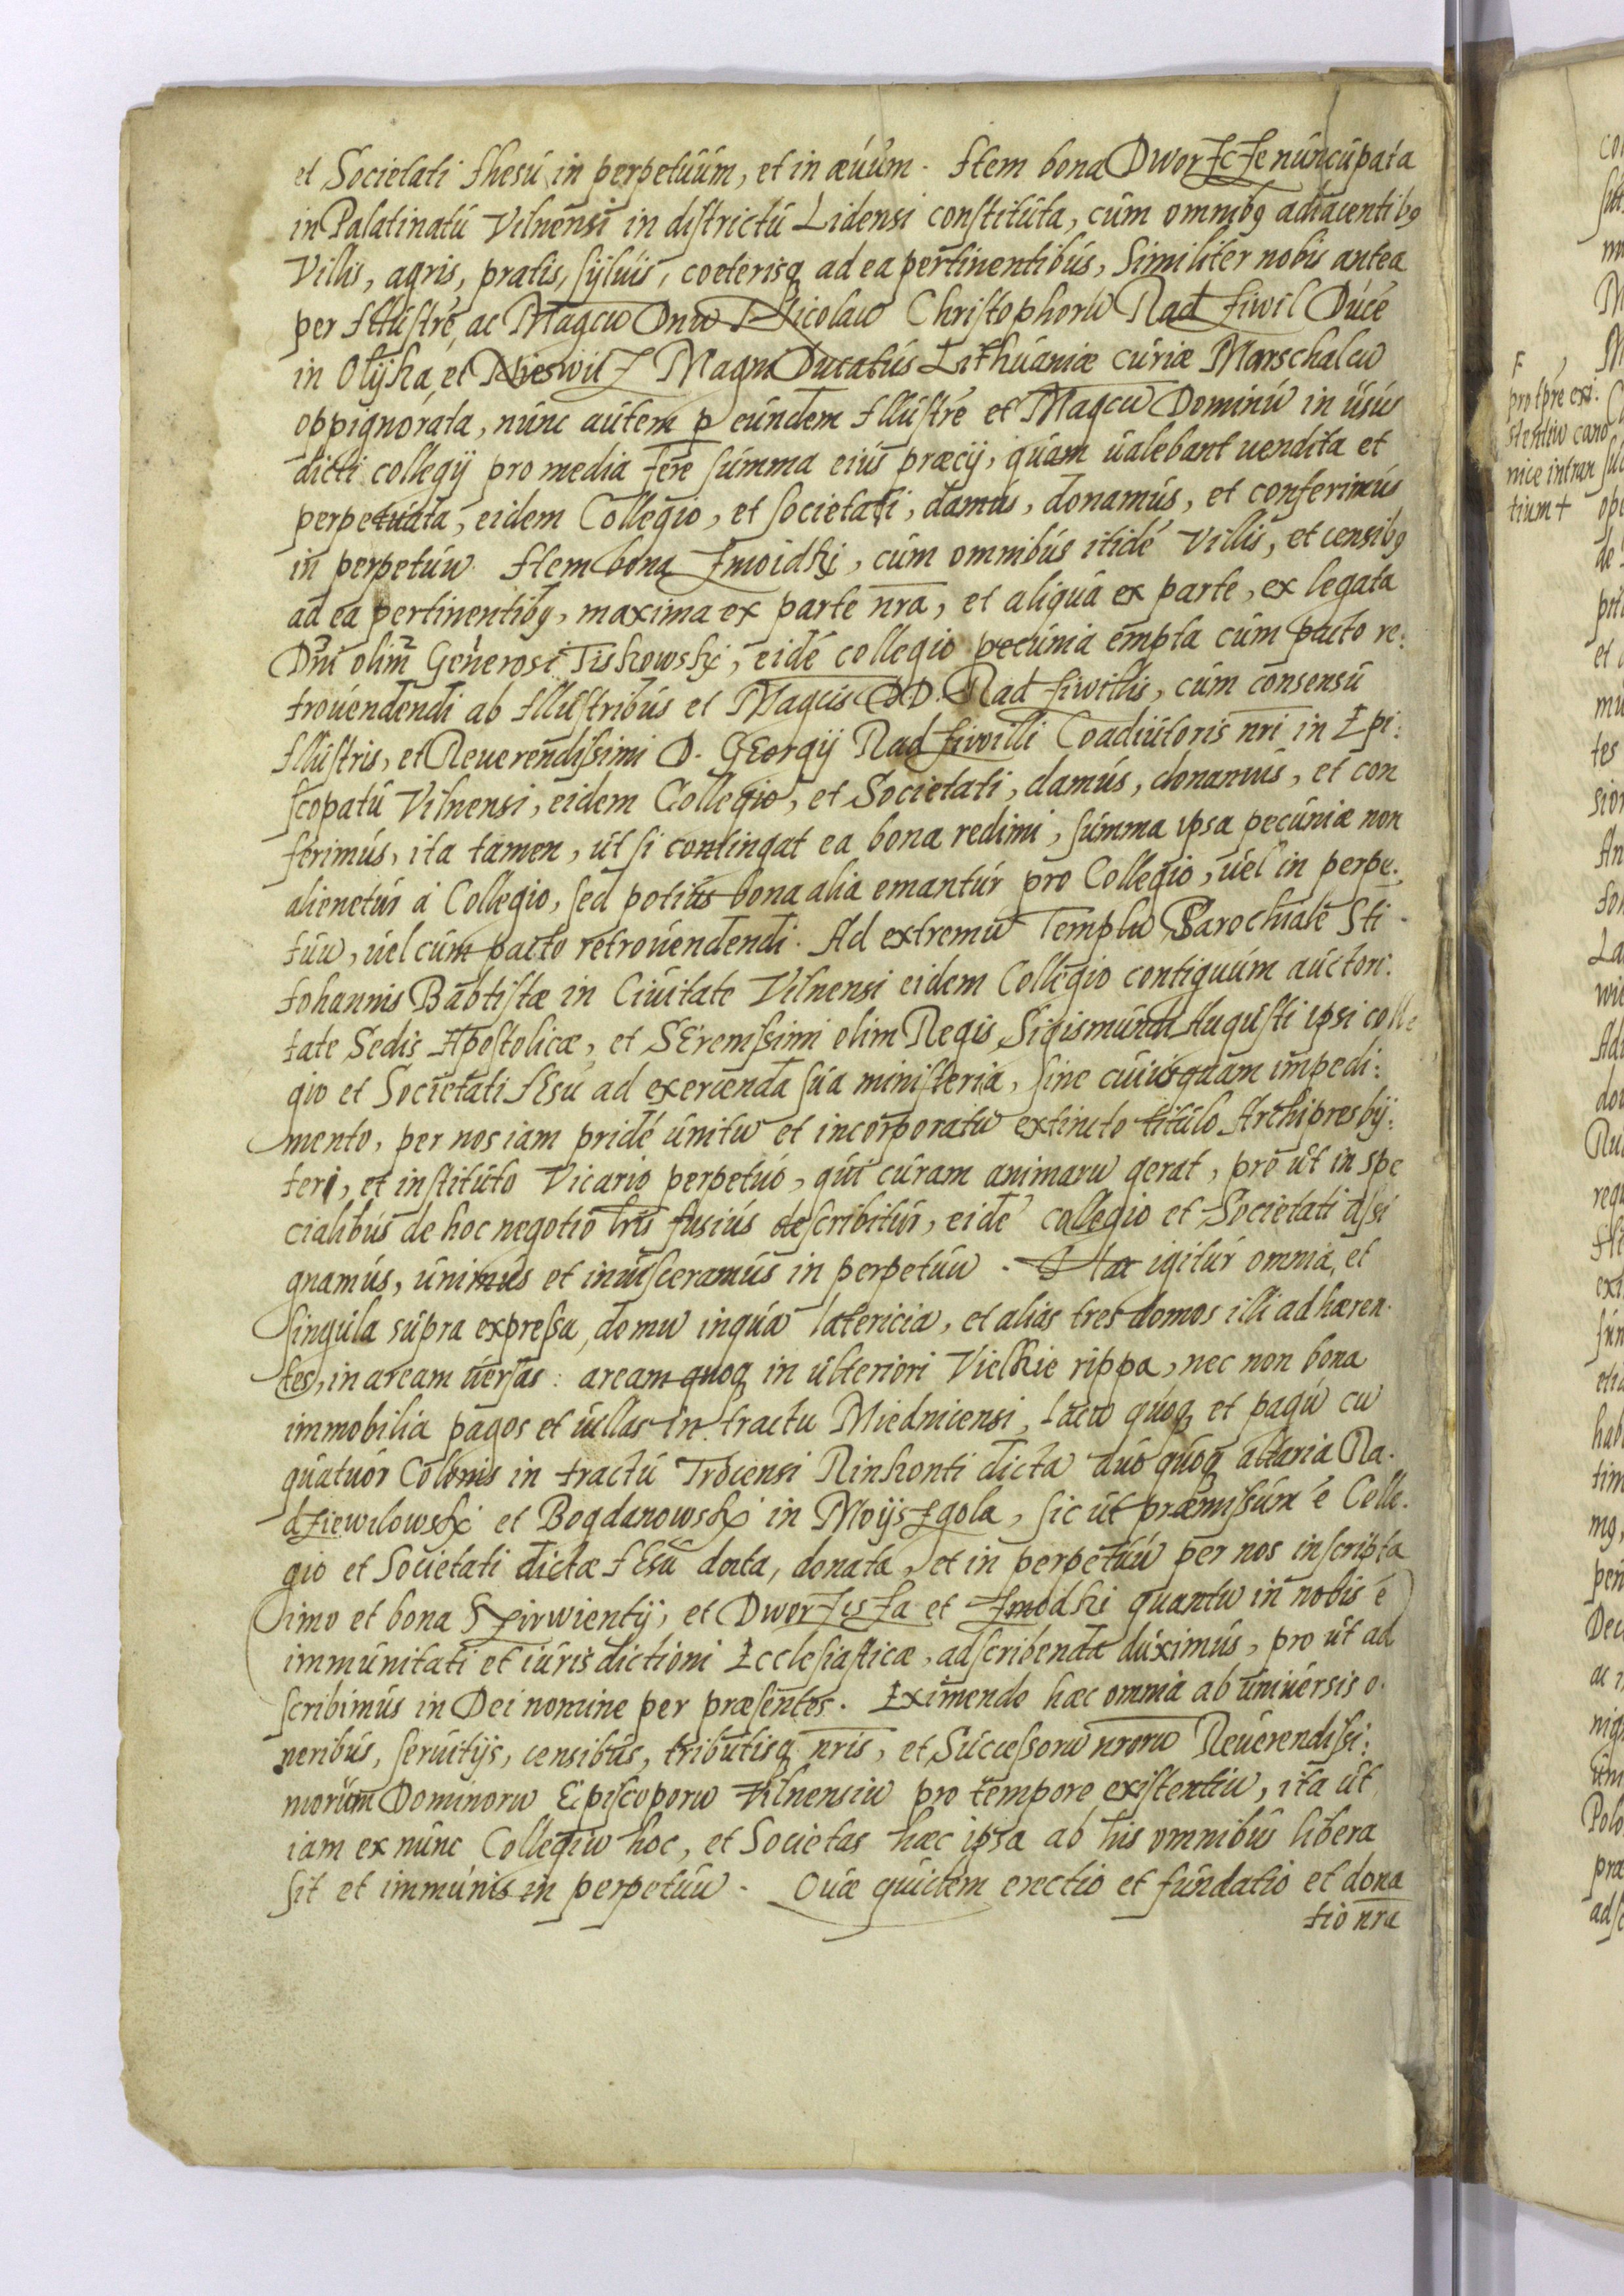 et Societati Ihesú in perpetúúm, et in æúúm. Item bona Dworzcze núncúpata
in Palatinatú Vilnensi in districtú Lidensi constitúta, cúm omnibq adiacentibq
Villis, agris, pratis, sylúis, coeterisq ad ea pertinentibús, Similiter nobis antea
per Illústré, ac Magcū Dnū Nicolaū Christophorū Radziwil Dúcé
in Olÿka, et Nieswilz Magni Dúcatús Lithúaniæ cúriæ Marschalcū
oppignorata, núnc aútem p eúndem Illústré et Magcū Dominú in úsúū
dicti collegÿ pro media fere súmma eiús præcÿ, qúam úalebant uendita et
perpetúata, eidem Collegio, et societati, damús, donamús, et conferimús
in perpetúū Item bona Zmoidzki, cúm omnibús itidé Villis, et censibq
ad ea pertinentibq, maxima ex parte nra, et aliqúa ex parte, ex legata
Dni olim Generosi Tiskowski, eidé collegio pecúnia empta cúm pacto re:
troúendendi ab Illústribús et Magcis DD. Radziwillis, cúm consensú
Illústris, et Reuerendissimi D. GEorgÿ Radziwilli Coadiútoris nri in Epi:
scopatú Vilnensi, eidem Collegio, et Societati, damús, donamús, et con
ferimús, ita tamen, út si contingat ea bona redimi, súmma ipsa pecúniæ non
alienetúr á Collegio, sed potiús bona alia emantúr pro Collegio, úel in perpe:
túū, úel cúm pacto retroúendendi. Ad extremū Templū Parochiale Sti
Iohannis Babtistæ in Ciúitate Vilnensi eidem Collegio contigúúm aúctori:
tate Sedis Apostolicæ, et SEremissimi olim Regis Sigismúndi Augústi ipsi colle
gio et Societati IEsú ad exercenda súa ministeria, sine cúiúsqúam impedi:
mento, per nos iam pridé únitū et incorporatū extincto titúlo Archipresbÿ:
teri, et institúto Vicario perpetúo, qúi cúram animarū gerat, pro út in spe
cialibús de hoc negotio lris fusiús describitúr, eidé collegio et Societati assi
gnamús, únimús et inúisceramús in perpetúū. Hæc igitúr omnia, et
singúla súpra expressa, domū inqúa latericia, et alias tres domos illi adhæren:
tes, in aream úersas: aream qúoq in últeriori Vielkie rippa, nec non bona
immobilia pagos et úillas in tractu Miedniciensi, lacū qúoq et pagú cū
qúatúor Colonis in tractú Trocensi Rinkonti dicta dúo qúoq altaria Ra.
dziewilowski et Bogdanowski in Moÿszgola, sic út præmissúm é Colle.
gio et Societati dictæ IEsú data, donata, et in perpetúú per nos inscripta
imo et bona Szirwientÿ, et Dworzisza et Zmodzki quantū in nobis é
immúnitati et iúrisdictioni Ecclesiasticæ, adscribenda dúximús, pro út ad
scribimús in Dei nomine per præsentes. Eximendo hæc omnia ab úniúersis o.
neribús, serúitÿs, censibús, tribútisq nris, et Súccessorū nrorū Reúerendissi:
morúm Dominorū Episcoporū Vilnensiū pro tempore existentiū, ita út
iam ex núnc Collegiū hoc, et Societas hæc ipsa ab his omnibús libera
sit et immúnis in perpetúū. Qúæ qúidem erectio et fúndatio et dona
tio nra
F
pro tpre exi:
stentiū cano
nice intran
tium +